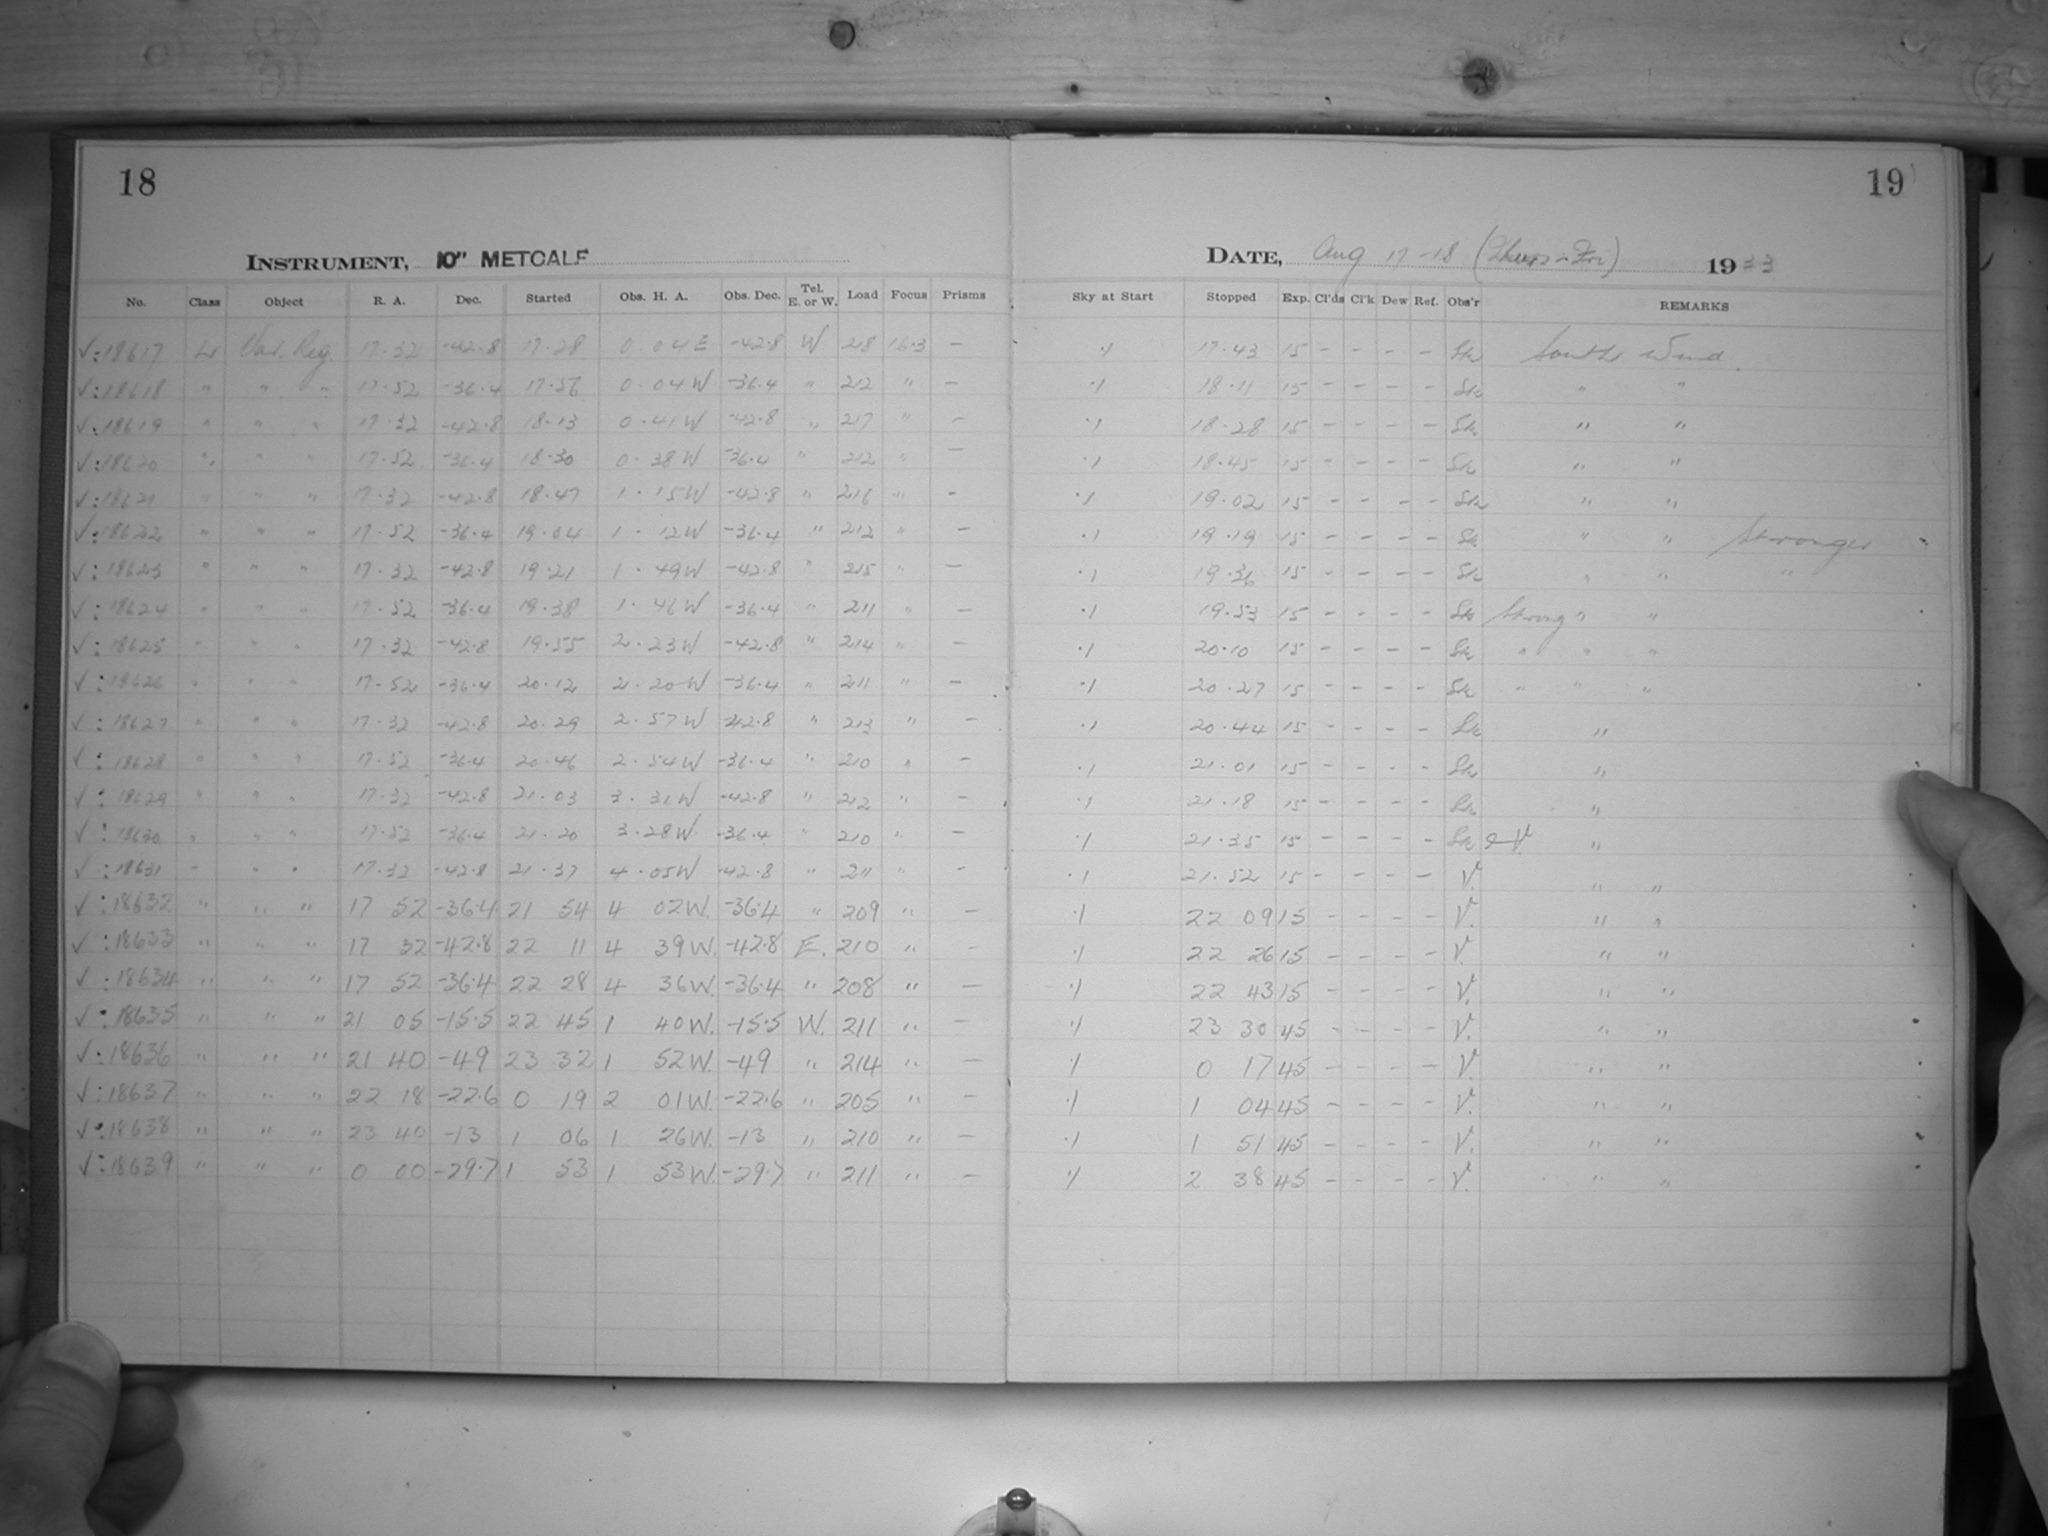 18
INSTRUMENT, 10" METCALF
No. Class Object R. A. Dec. Started Obs. H. A. Obs. Dec. Tel. E. or W. Load Focus Prisms
√:18617 Var. Reg. 17.32 -42.8 17.28 0.04E -42.8 W 218 16.3 -
√:18618 " " " 17.52 -36.4 17.56 0.04W -36.4 " 212 " -
√:18619 " " " 17.32 -42.8 18.13 0.41W -42.8 " 217 " -
√:18620 " " " 17.52 -36.4 18.30 0.38W -36.4 " 212 " -
√:18621 " " " 17.32 -42.8 18.47 1.15W -42.8 " 216 " -
√:18622 " " " 17.52 -36.4 19.04 1.12W -36.4 " 212 " -
√:18623 " " " 17.32 -42.8 19.21 1.49W -42.8 " 215 " -
√:18624 " " " 17.52 -36.4 19.38 1.46W -36.4 " 211 " -
√:18625 " " " 17.32 -42.8 19.55 2.23W -42.8 " 214 " -
√:18626 " " " 17.52 -36.4 20.12 2.20W -36.4 " 211 " -
√:18627 " " " 17.32 -42.8 20.29 2.57W -42.8 " 213 " -
√:18628 " " " 17.52 -36.4 20.46 2.54W -36.4 " 210 " -
√:18629 " " " 17.32 -42.8 21.03 3.31W -42.8 " 212 " -
√:18630 " " " 17.52 -36.4 21.20 3.28W -36.4 " 210 " -
√:18631 " " " 17.32 -42.8 21.37 4.05W -42.8 " 211 " -
√:18632 " " " 17 52 -36.4 21 54 4 02W. -36.4 " 209 " -
√:18633 " " " 17 32 -42.8 22 11 4 39W. -42.8 E. 210 " -
√:18634 " " " 17 52 -36.4 22 28 4 36W. -36.4 " 208 " -
√:18635 " " " 21 05 -15.5 22 45 1 40W. -15.5 W. 211 " -
√:18636 " " " 21 40 -49 23 32 1 52W. -49 " 214 " -
√:18637 " " " 22 18 -22.6 0 19 2 01W. -22.6 " 205 " -
√:18638 " " " 23 40 -13 1 06 1 26W. -13 " 210 " -
√:18639 " " " 0 00 -29.7 1 53 1 53W. -29.7 " 211 " -
19
DATE, Aug 17-18 (Thurs-Fri) 1933
Sky at Start Stopped Exp. Cl'ds Cl'k Dew Ref. Obs'r REMARKS
.1 17.43 15 - - - - South Wind.
.1 18.11 15 - - - - " "
.1 18.28 15 - - - - " "
.1 18.45 15 - - - - " "
.1 19.02 15 - - - - " "
.1 19.19 15 - - - - " " Stronger
.1 19.36 15 - - - - " " "
.1 19.53 15 - - - - Strong " "
.1 20.10 15 - - - - " " "
.1 20.27 15 - - - - " " "
.1 20.44 15 - - - - "
.1 21.01 15 - - - - "
.1 21.18 15 - - - - "
.1 21.35 15 - - - - &V. "
.1 21.52 15 - - - - V. " "
.1 22 09 15 - - - - V. " "
.1 22 26 15 - - - - V. " "
.1 22 43 15 - - - - V. " "
.1 23 30 45 - - - - V. " "
.1 0 17 45 - - - - V. " "
.1 1 04 45 - - - - V. " "
.1 1 51 45 - - - - V. " "
.1 2 38 45 - - - - V. " "